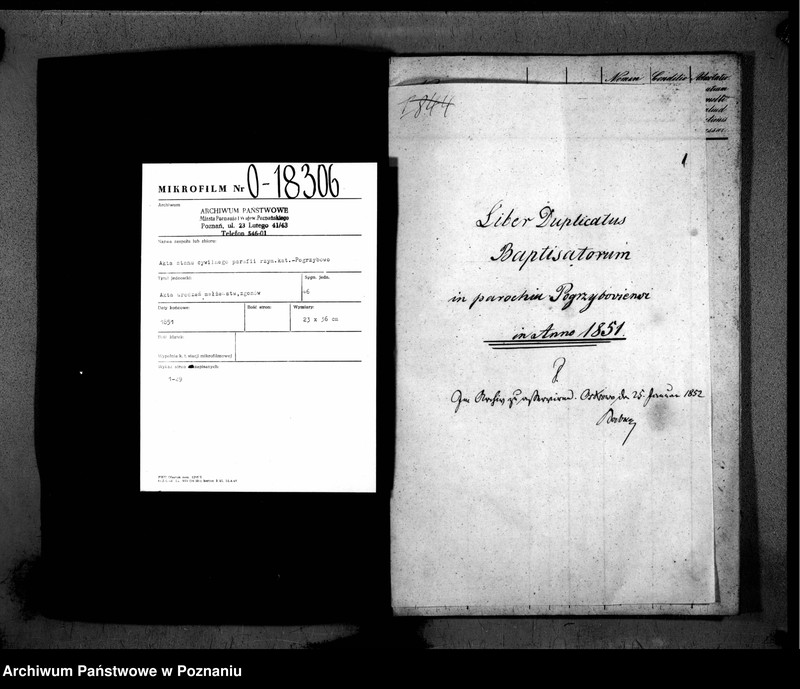 MIKROFILM Nr O-18306
Archiwum:
ARCHIWUM PAŃSTWOWE
Miasta Poznania i Wojew. Poznańskiego
Poznań, ul. 23 Lutego 41/43
Telefon 546-01
Nazwa zespołu lub zbioru:
Akta stanu cywilnego parafii rzym.kat.-Pogrzybowo
Tytuł jednostki:
Sygn. jedn.
Akta urodzeń małżeństw, zgonów
46
Daty końcowe:
Ilość stron:
Wymiary:
1851
23 x 36 cm
Wypełnia k. i. stacji mikrofilmowej
1-29
1844
Nomen Conditio
1
Liber Duplicatus
Baptisatorum
in parochia Pogrzyboviensi
in Anno 1851.
Archiv zu 25. Januar 1852
Archiwum Państwowe w Poznaniu